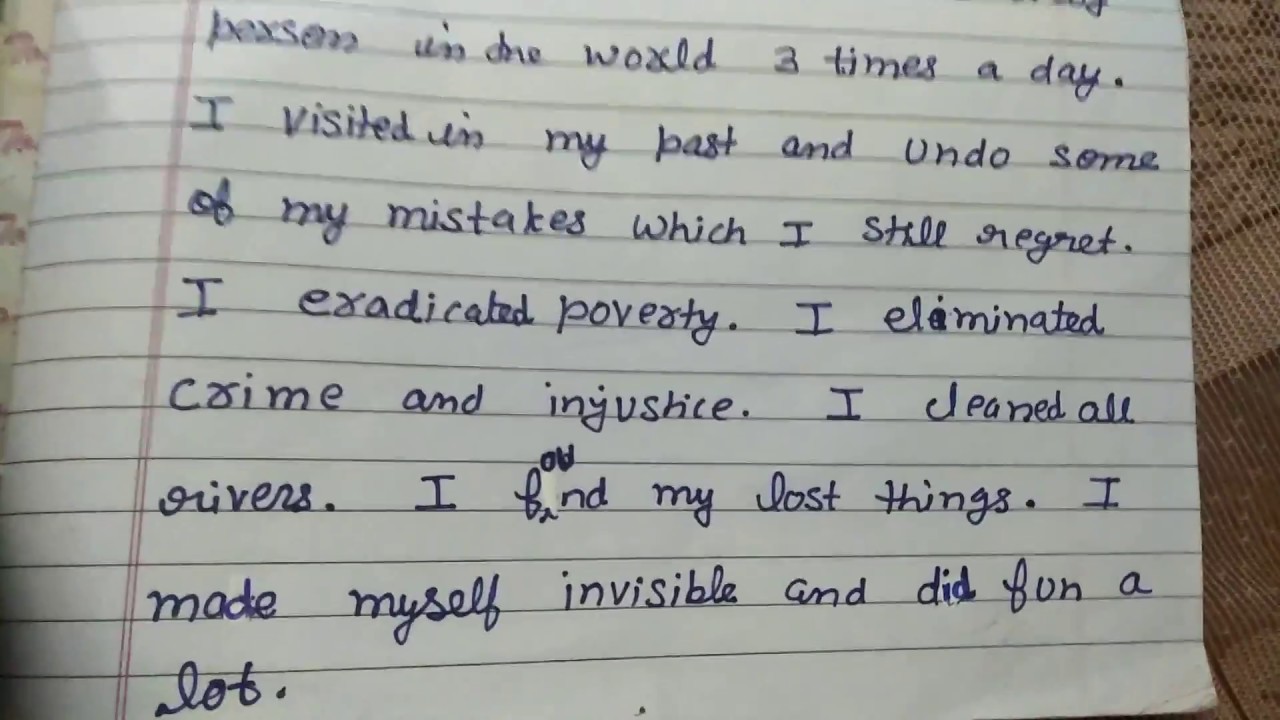 person in the world 3 times a day.
I visited in my past and undo some
of my mistakes which I still regret.
I eradicated poverty. I eliminated
crime and injustice. I cleaned all
rivers. I found my lost things. I
made myself invisible and did fun a
lot.